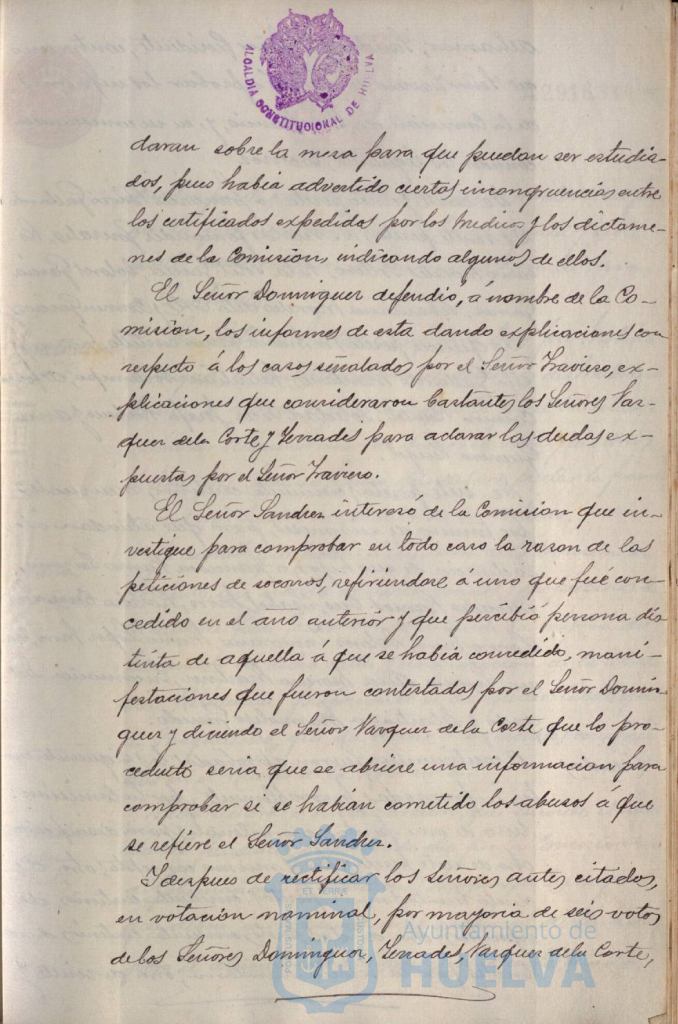 ALCALDIA CONSTITUCIONAL DE HUELVA
daran sobre la mesa para que puedan ser estudia-
dos, pues habia advertido ciertas incongruencias entre
los certificados expedidos por los Medicos y los dictame-
nes de la Comision, indicando algunos de ellos.
El Señor Dominguez defendió, á nombre de la Co-
mision, los informes de esta dando explicaciones con
respecto á los casos señalados por el Señor Traviero, ex-
plicaciones que consideraron bastantes los Señores Vaz-
quez de la Corte y Terrades para aclarar las dudas ex-
puestas por el Señor Traviero.
El Señor Sanchez interesó de la Comision que in-
vestigue para comprobar en todo caso la razon de las
peticiones de socorros, refiriendose á uno que fué con-
cedido en el año anterior y que percibió persona dis-
tinta de aquella á que se habia concedido, mani-
festaciones que fueron contestadas por el Señor Domin-
guez y diciendo el Señor Vazquez de la Corte que lo pro-
cedente seria que se abriese una informacion para
comprobar si se habian cometido los abusos á que
se refiere el Señor Sanchez.
Y despues de rectificar los Señores antes citados,
en votación nominal, por mayoria de seis votos
de los Señores Dominguez, Terrades, Vazquez de la Corte,
Ayuntamiento de
HUELVA